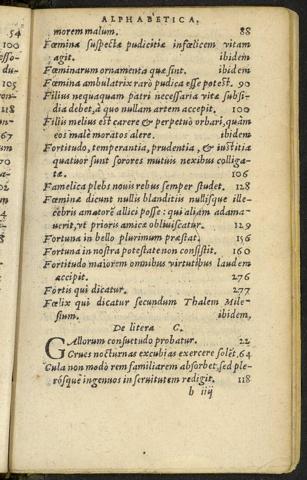 ALPHABETICA.
morem malum. 88
Fœmina suspectæ pudicitiæ infœlicem vitam
agit. ibidem
Fœminarum ornamenta quæ sint. ibidem
Fœmina ambulatrix rarò pudica esse potest. 90
Filius nequaquam patri necessaria vitæ subsi-
dia debet, à quo nullam artem accepit. 100
Filiis melius est carere & perpetuò orbari, quàm
eos malè moratos alere. ibidem
Fortitudo, temperantia, prudentia, & iustitia
quatuor sunt sorores mutuis nexibus colliga-
tæ. 106
Famelica plebs nouis rebus semper studet. 128
Fœminæ dicunt nullis blanditiis nullisque ille-
cebris amatorē allici posse: qui aliàm adama-
uerit, vt prioris amicæ obliuiscatur. 129
Fortuna in bello plurimum præstat. 156
Fortuna in nostra potestate non consistit. 160
Fortitudo maiorem omnibus virtutibus laudem
accipit. 276
Fortis qui dicatur. 277
Fœlix qui dicatur secundum Thalem Mile-
sium. ibidem,
De litera C.
GAllorum consuetudo probatur. 22
Grues nocturnas excubias exercere solēt. 64
Gula non modò rem familiarem absorbet, sed ple-
rósque ingenuos in seruitutem redigit. 118
b iiij
54
100
105
118
67